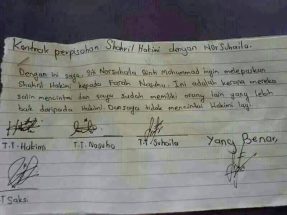 Kontrak perpisahan Shahril Hakimi dengan NorSuhaila.
Dengan ini saya, Siti Norsuhaila Binti Mohammad ingin melepaskan
Shahril Hakimi kepada Farah Nasuha. Ini adalah kerana mereka
saling mencintai dan saya sudah memiliki orang lain yang lebih
baik daripada Hakimi. Dan saya tidak mencintai Hakimi lagi.
T.T. Hakimi T.T. Nasuha T.T. Suhaila Yang Benar,
T Saksi